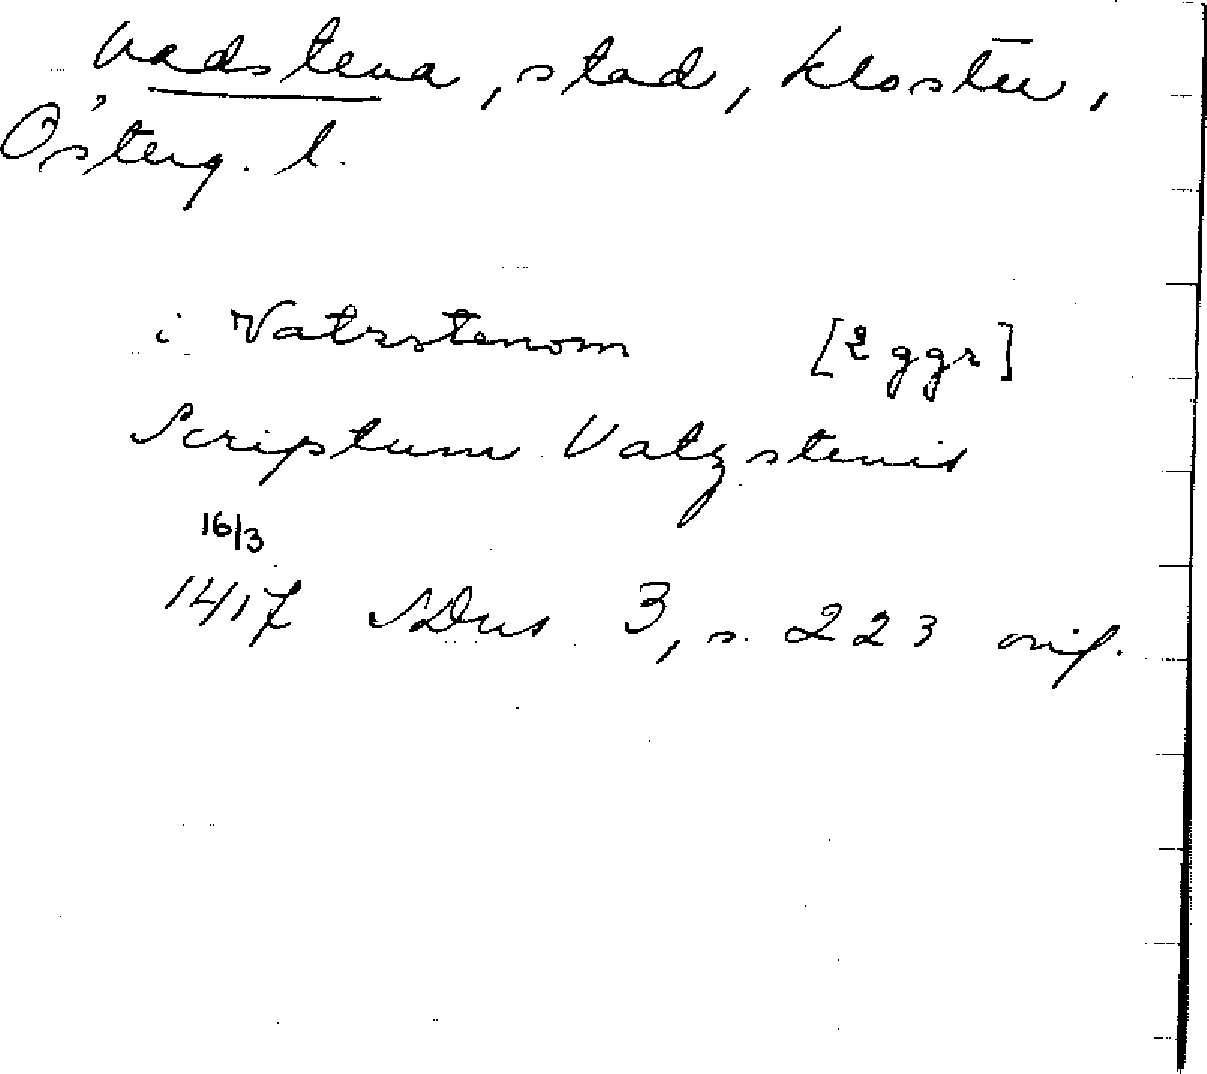 Vadstena, stad, kloster,
Österg. l.
i Vatzstenom [2 ggr]
Scriptum Vatzstenis
16/3
1417 SDns 3, s. 223 orig.